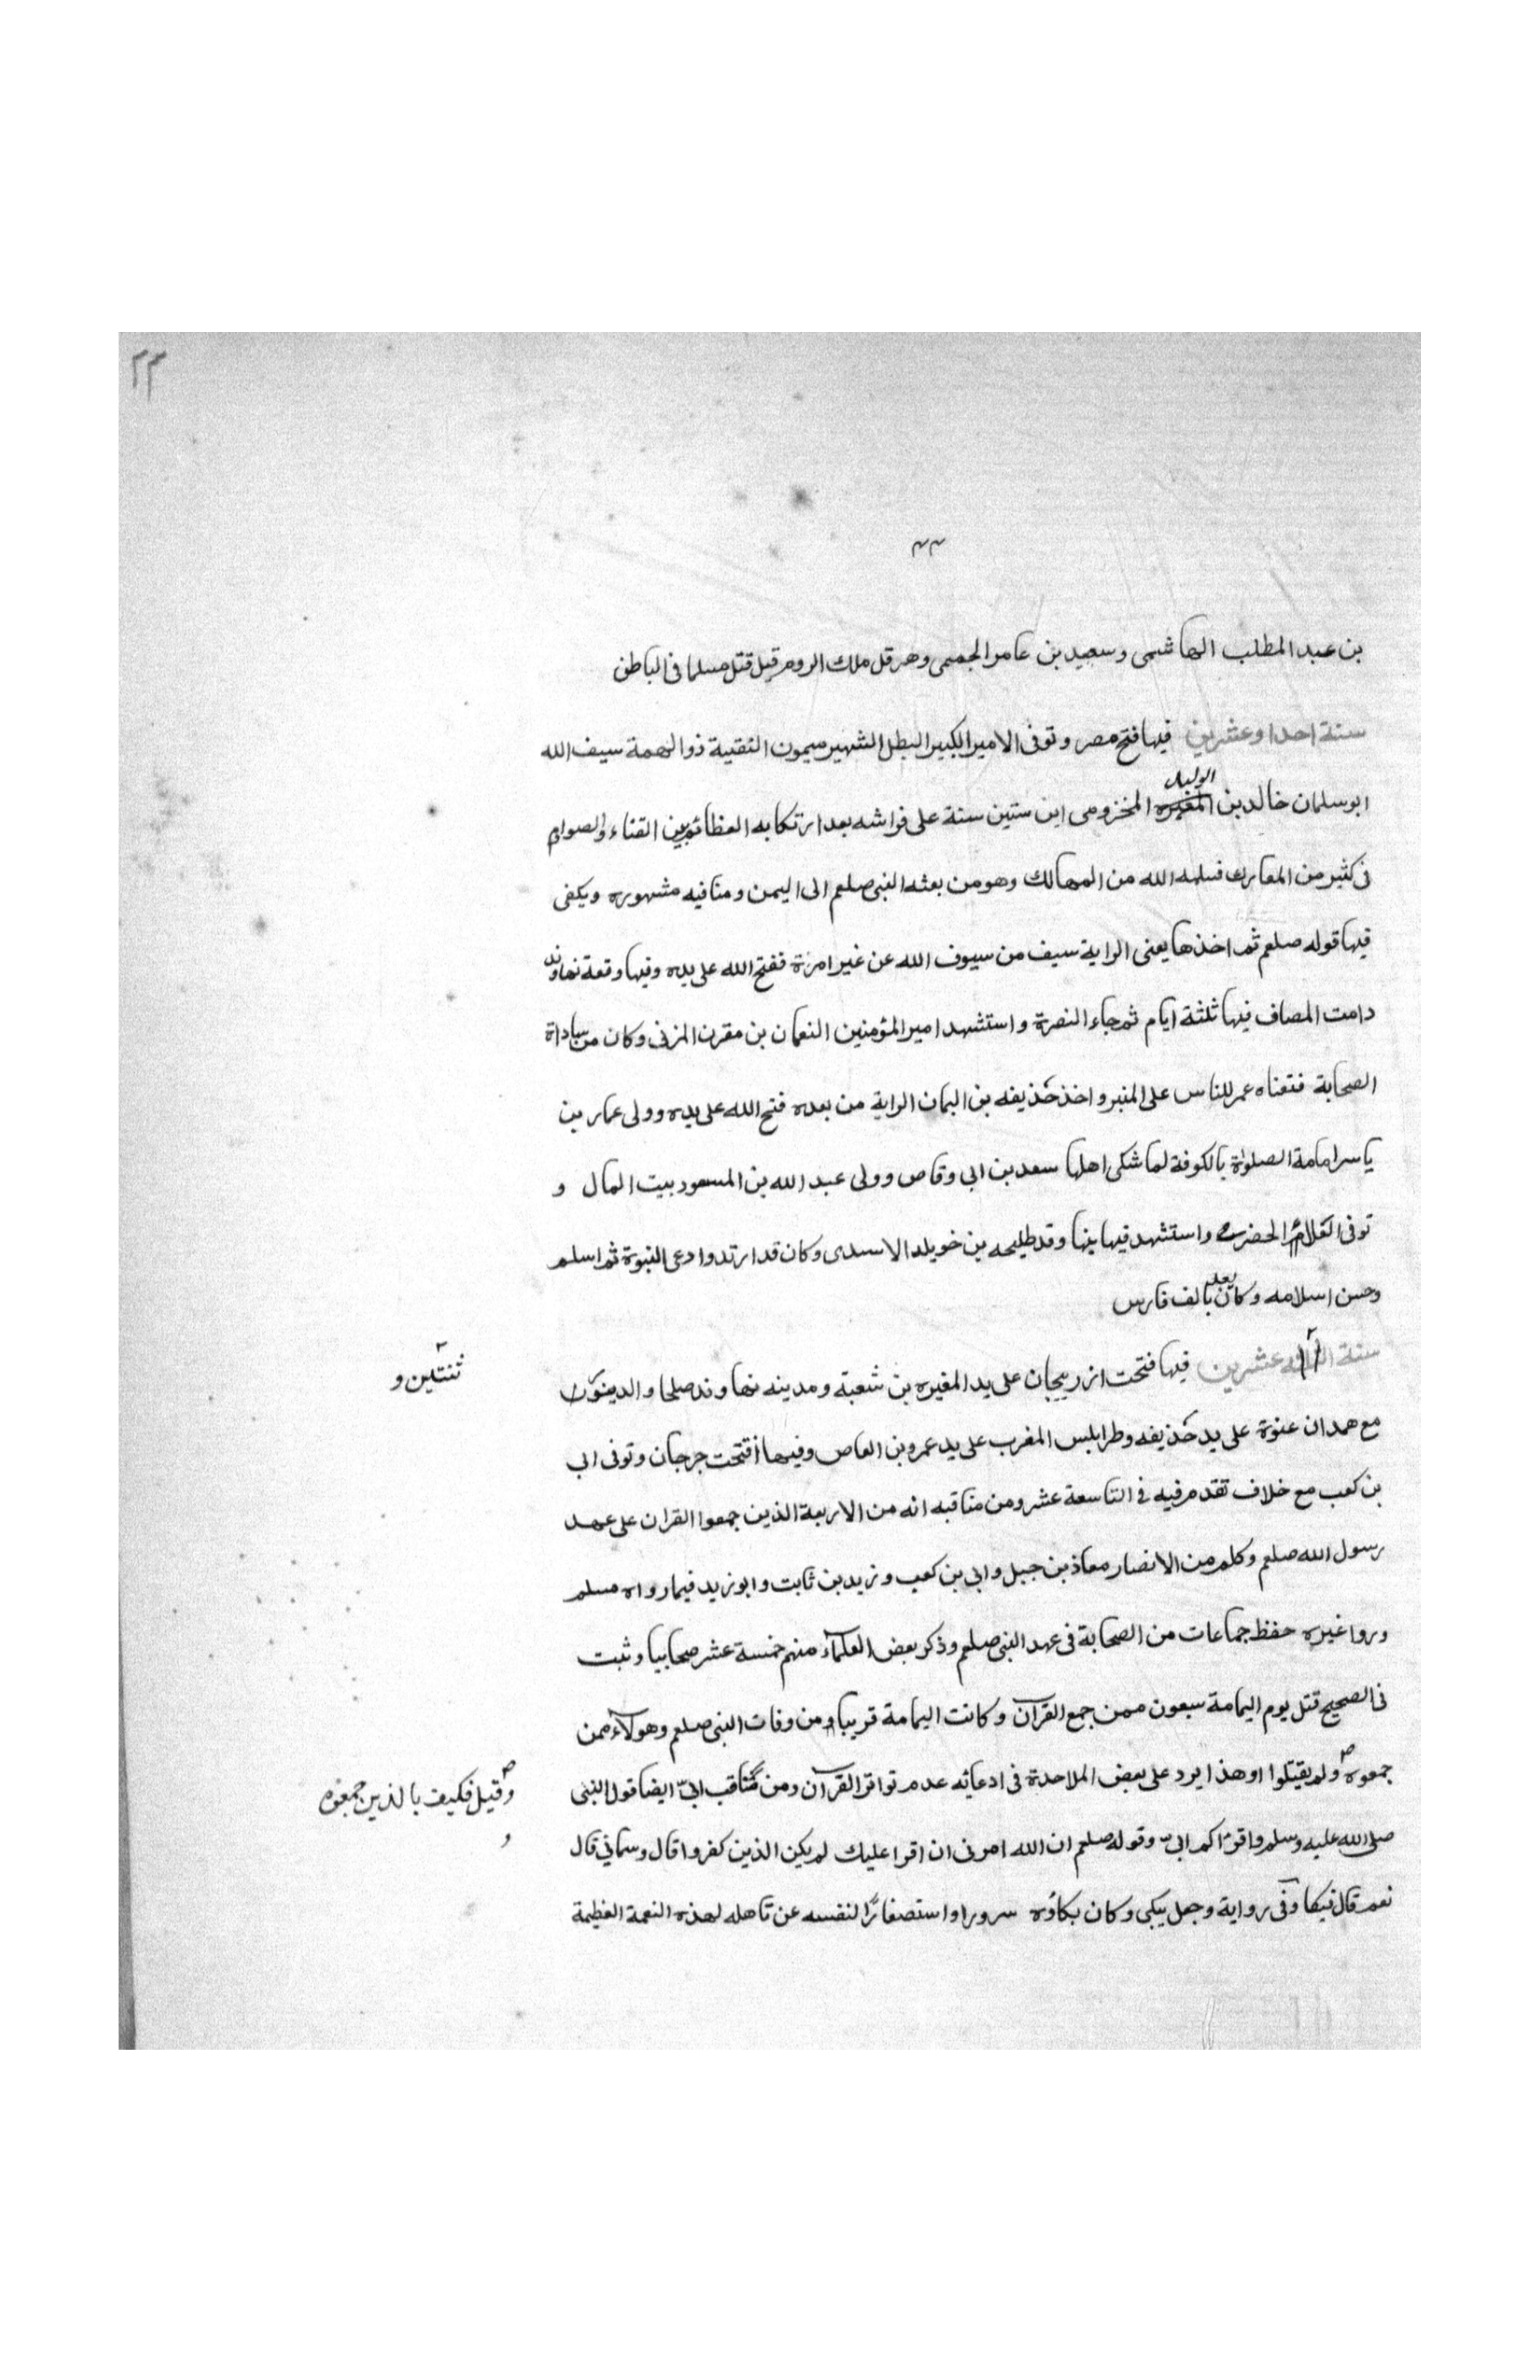 ٢٣
٣٣
بن عبد المطلب الهاشمى وسعيد بن عامر الجمحمى وهرقل ملك الروم قيل قتل مسلما فى الباطن
سنة احدا وعشرين فيها فتح مصر وتوفى الامير الكبير البطل الشهير ميمون النقيبة ذو الهمة سيف الله
الوليد
ابو سليمان خالد بن المغيره المخزومى ابن ستين سنة على فراشه بعد ارتكابه العظائم بين القناء والصوارم
فى كثير من المعارك فسلمه الله من المهالك وهو من بعثه النبى صلعم الى اليمن ومناقبه مشهوره ويكفى
فيها قوله صلعم ثم اخذها يعنى الراية سيف من سيوف الله عن غير امرة ففتح الله على يده وفيها وقعة نهاوند
دامت المصاف فيها ثلثة ايام ثم جاء النصرة واستشهد امير المؤمنين النعمان بن مقرن المزنى وكان من ساداة
الصحابة فنعاه عمر للناس على المنبر واخذ حذيفه بن اليمان الراية من بعده فتح الله على يده وولى عمار بن
ياسر امامة الصلواة بالكوفة لما شكى اهلها سعد بن ابى وقاص وولى عبد الله بن المسعود بيت المال و
توفى العلاء الحضرمى واستشهد فيها بنها وقد طليحه بن خويلد الاسدى وكان قد ارتد وادعى النبوة ثم اسلم
وحسن اسلامه وكان يعد بالف فارس
سنة عشرين فيها فتحت اذربيجان على يد المغيره بن شعبة ومدينه نهاوند صلحا والدينور
ثنتين و
مع همدان عنوة على يد حذيفه وطرابلس المغرب على يد عمرو بن العاص وفيها افتتحت جرجان وتوفى ابى
بن كعب مع خلاف تقدم فيه فى التاسعة عشر ومن مناقبه انه من الاربعة الذين جمعوا القران على عهد
رسول الله صلعم وكلهم من الانصار معاذ بن جبل وابى بن كعب وزيد بن ثابت وابو زيد فيما رواه مسلم
وروا غيره حفظ جماعات من الصحابة فى عهد النبى صلعم وذكر بعض العلماء منهم خمسة عشر صحابيا وثبت
فى الصحيح قتل يوم اليمامة سبعون ممن جمع القرآن وكانت اليمامة قريبا من وفات النبى صلعم وهولاء ممن
جمعوه ولم يقيتلوا او هذا يرد على بعض الملاحدة فى ادعائه عدم تواتر القرآن ومن مناقب ابىّ ايضا قول النبى
وقيل فكيف بالذين جمعوه
و
صلى الله عليه وسلم واقرؤاكم ابىّ وقوله صلعم ان الله امرنى ان اقرا عليك لم يكن الذين كفروا قال وسمانى قال
نعم قال فبكا وفى رواية وجعل يبكى وكان بكاؤه سرورا واستصغارًا لنفسه عن تاهله لهذه النعمة العظيمة